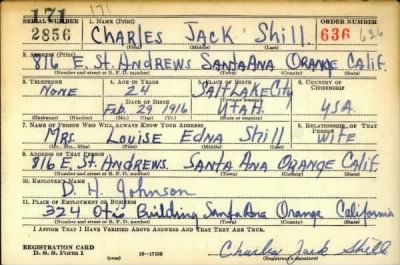 171
171
SERIAL NUMBER 1. NAME (Print) ORDER NUMBER
2856 CHARLES JACK Shill. 636 636
(First) (Middle) (Last)
2. ADDRESS (Print)
816 E. St. ANDREWS SANTA ANA ORANGE CALIF.
(Number and street or R. F. D. number) (Town) (County) (State)
3. TELEPHONE 4. AGE IN YEARS 5. PLACE OF BIRTH 6. COUNTRY OF CITIZENSHIP
NONE 24 SALTLAKE CITY
DATE OF BIRTH (Town or county)
Feb. 29 1916 UTAH. USA.
(Mo.) (Day) (Yr.) (State or country)
7. NAME OF PERSON WHO WILL ALWAYS KNOW YOUR ADDRESS 8. RELATIONSHIP OF THAT PERSON
MRS. LOUISE EDNA Shill WIFE
(Mr., Mrs., Miss) (First) (Middle) (Last)
9. ADDRESS OF THAT PERSON
816 E. St. ANDREWS. SANTA ANA ORANGE CALIF.
(Number and street or R. F. D. number) (Town) (County) (State)
10. EMPLOYER'S NAME
D. H. Johnson
11. PLACE OF EMPLOYMENT OR BUSINESS
324 Otis Building Santa Ana Orange California
(Number and street or R. F. D. number) (Town) (County) (State)
I AFFIRM THAT I HAVE VERIFIED ABOVE ANSWERS AND THAT THEY ARE TRUE.
REGISTRATION CARD
D. S. S. Form 1 (over) 16-17105 Charles Jack Shill
(Registrant's signature)